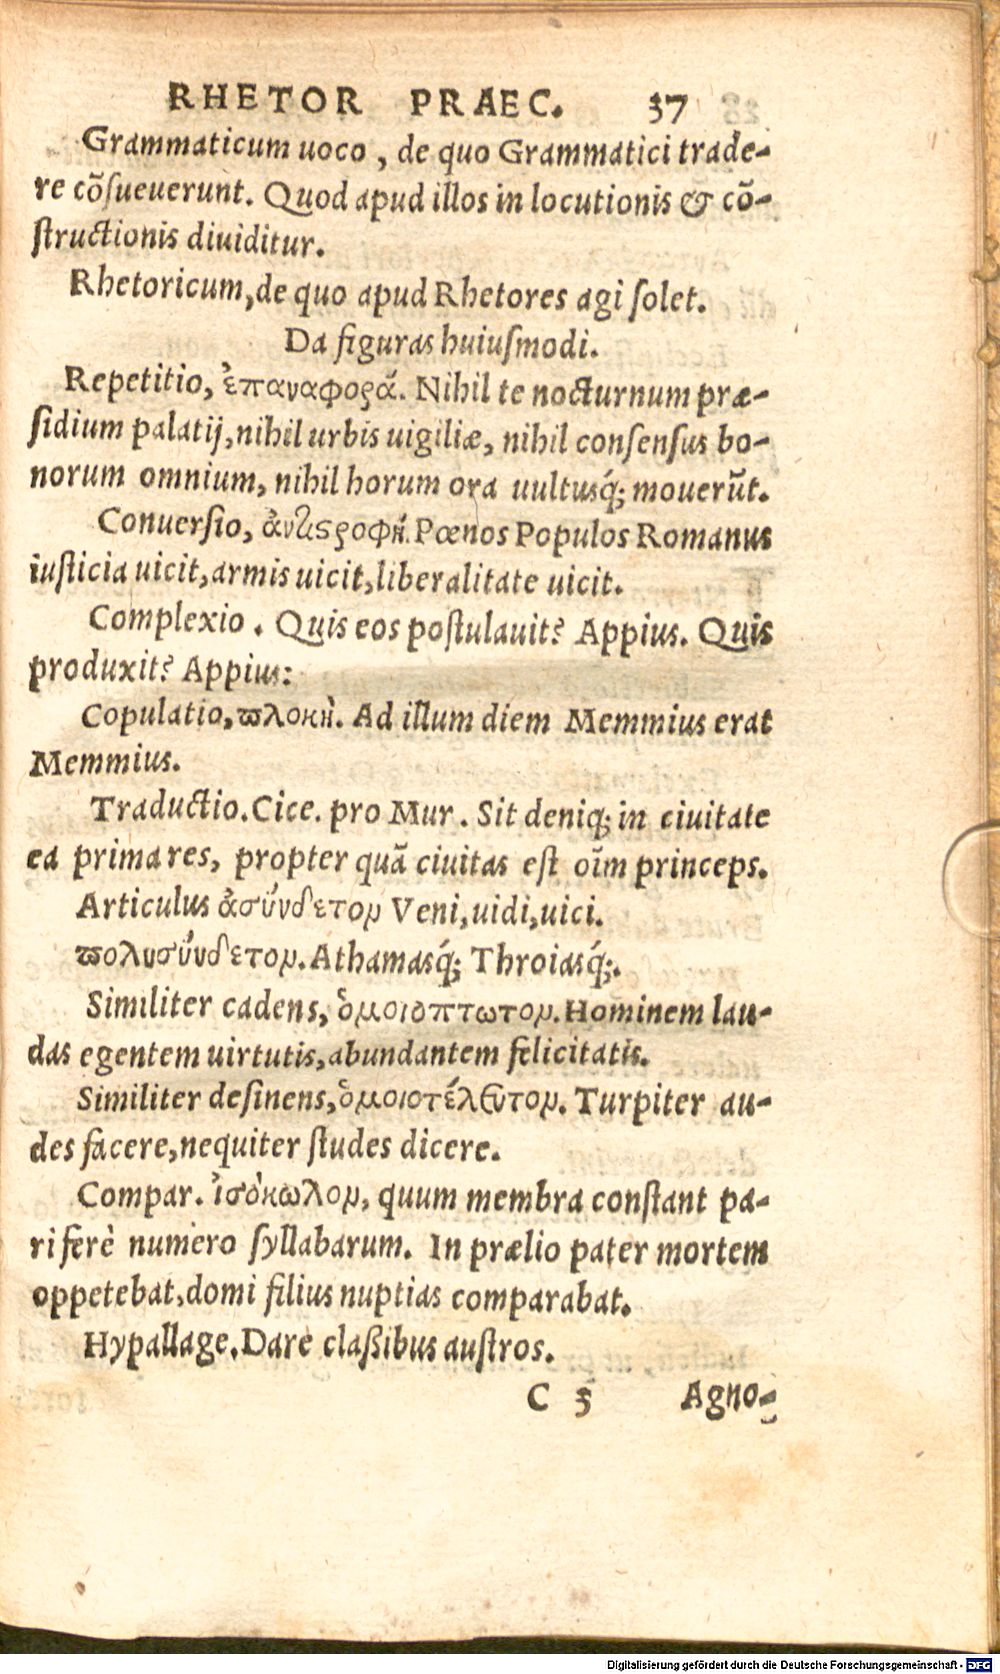 RHETOR PRAEC. 37
Grammaticum uoco, de quo Grammatici trade-
re cōſueuerunt. Quod apud illos in locutionis & cō-
ſtructionis diuiditur.
Rhetoricum, de quo apud Rhetores agi ſolet.
Da figuras huiuſmodi.
Repetitio, ἐπαναφορά. Nihil te nocturnum præ-
ſidium palatij, nihil urbis uigiliæ, nihil conſenſus bo-
norum omnium, nihil horum ora uultusq́; mouerūt.
Conuerſio, ἀντιςροφή. Pœnos Populos Romanus
iuſticia uicit, armis uicit, liberalitate uicit.
Complexio. Quis eos poſtulauit? Appius. Quis
produxit? Appius:
Copulatio, ϖλοκὴ. Ad illum diem Memmius erat
Memmius.
Traductio. Cice. pro Mur. Sit deniq; in ciuitate
ea prima res, propter quā ciuitas eſt oīm princeps.
Articulus ἀσύνδετον Veni, uidi, uici.
ϖολυσύνδετον. Athamasq́; Throiasq́;.
Similiter cadens, ὁμοιοπτωτον. Hominem lau-
das egentem uirtutis, abundantem felicitatis.
Similiter deſinens, ὁμοιοτέλευτον. Turpiter au-
des facere, nequiter ſtudes dicere.
Compar. ἰσόκωλον, quum membra conſtant pa-
ri ferè numero ſyllabarum. In prælio pater mortem
oppetebat, domi filius nuptias comparabat.
Hypallage. Dare claßibus auſtros.
C 3 Agno-
Digitalisierung gefördert durch die Deutsche Forschungsgemeinschaft - DFG